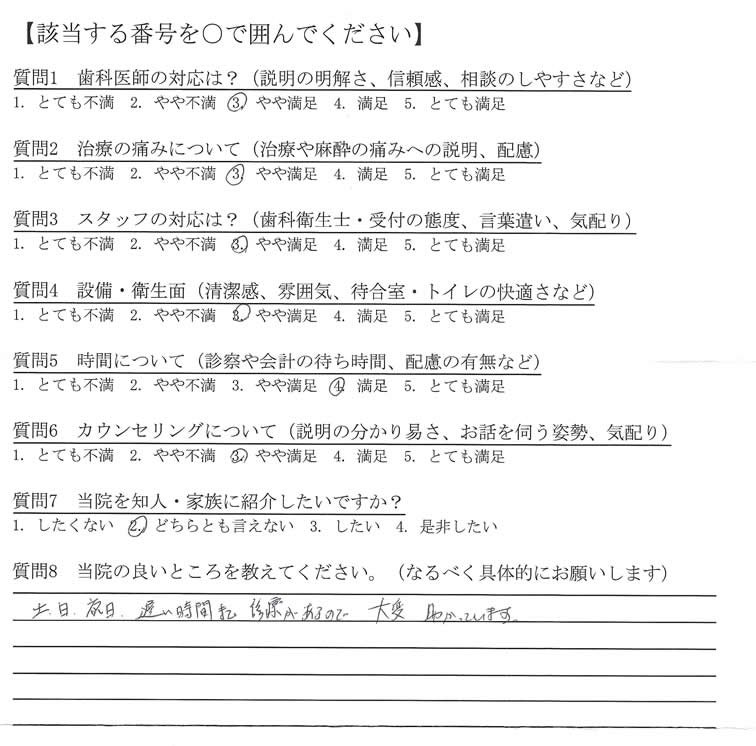 【該当する番号を〇で囲んでください】
質問1 歯科医師の対応は?（説明の明解さ、信頼感、相談のしやすさなど）
1. とても不満 2. やや不満 3. やや満足 4. 満足 5. とても満足
質問2 治療の痛みについて（治療や麻酔の痛みへの説明、配慮）
1. とても不満 2. やや不満 3. やや満足 4. 満足 5. とても満足
質問3 スタッフの対応は?（歯科衛生士・受付の態度、言葉遣い、気配り）
1. とても不満 2. やや不満 3. やや満足 4. 満足 5. とても満足
質問4 設備・衛生面（清潔感、雰囲気、待合室・トイレの快適さなど）
1. とても不満 2. やや不満 3. やや満足 4. 満足 5. とても満足
質問5 時間について（診察や会計の待ち時間、配慮の有無など）
1. とても不満 2. やや不満 3. やや満足 4. 満足 5. とても満足
質問6 カウンセリングについて（説明の分かり易さ、お話を伺う姿勢、気配り）
1. とても不満 2. やや不満 3. やや満足 4. 満足 5. とても満足
質問7 当院を知人・家族に紹介したいですか？
1. したくない 2. どちらとも言えない 3. したい 4. 是非したい
質問8 当院の良いところを教えてください。（なるべく具体的にお願いします）
土.日.祝日.遅い時間まで 診療があるので 大変 助かっています。